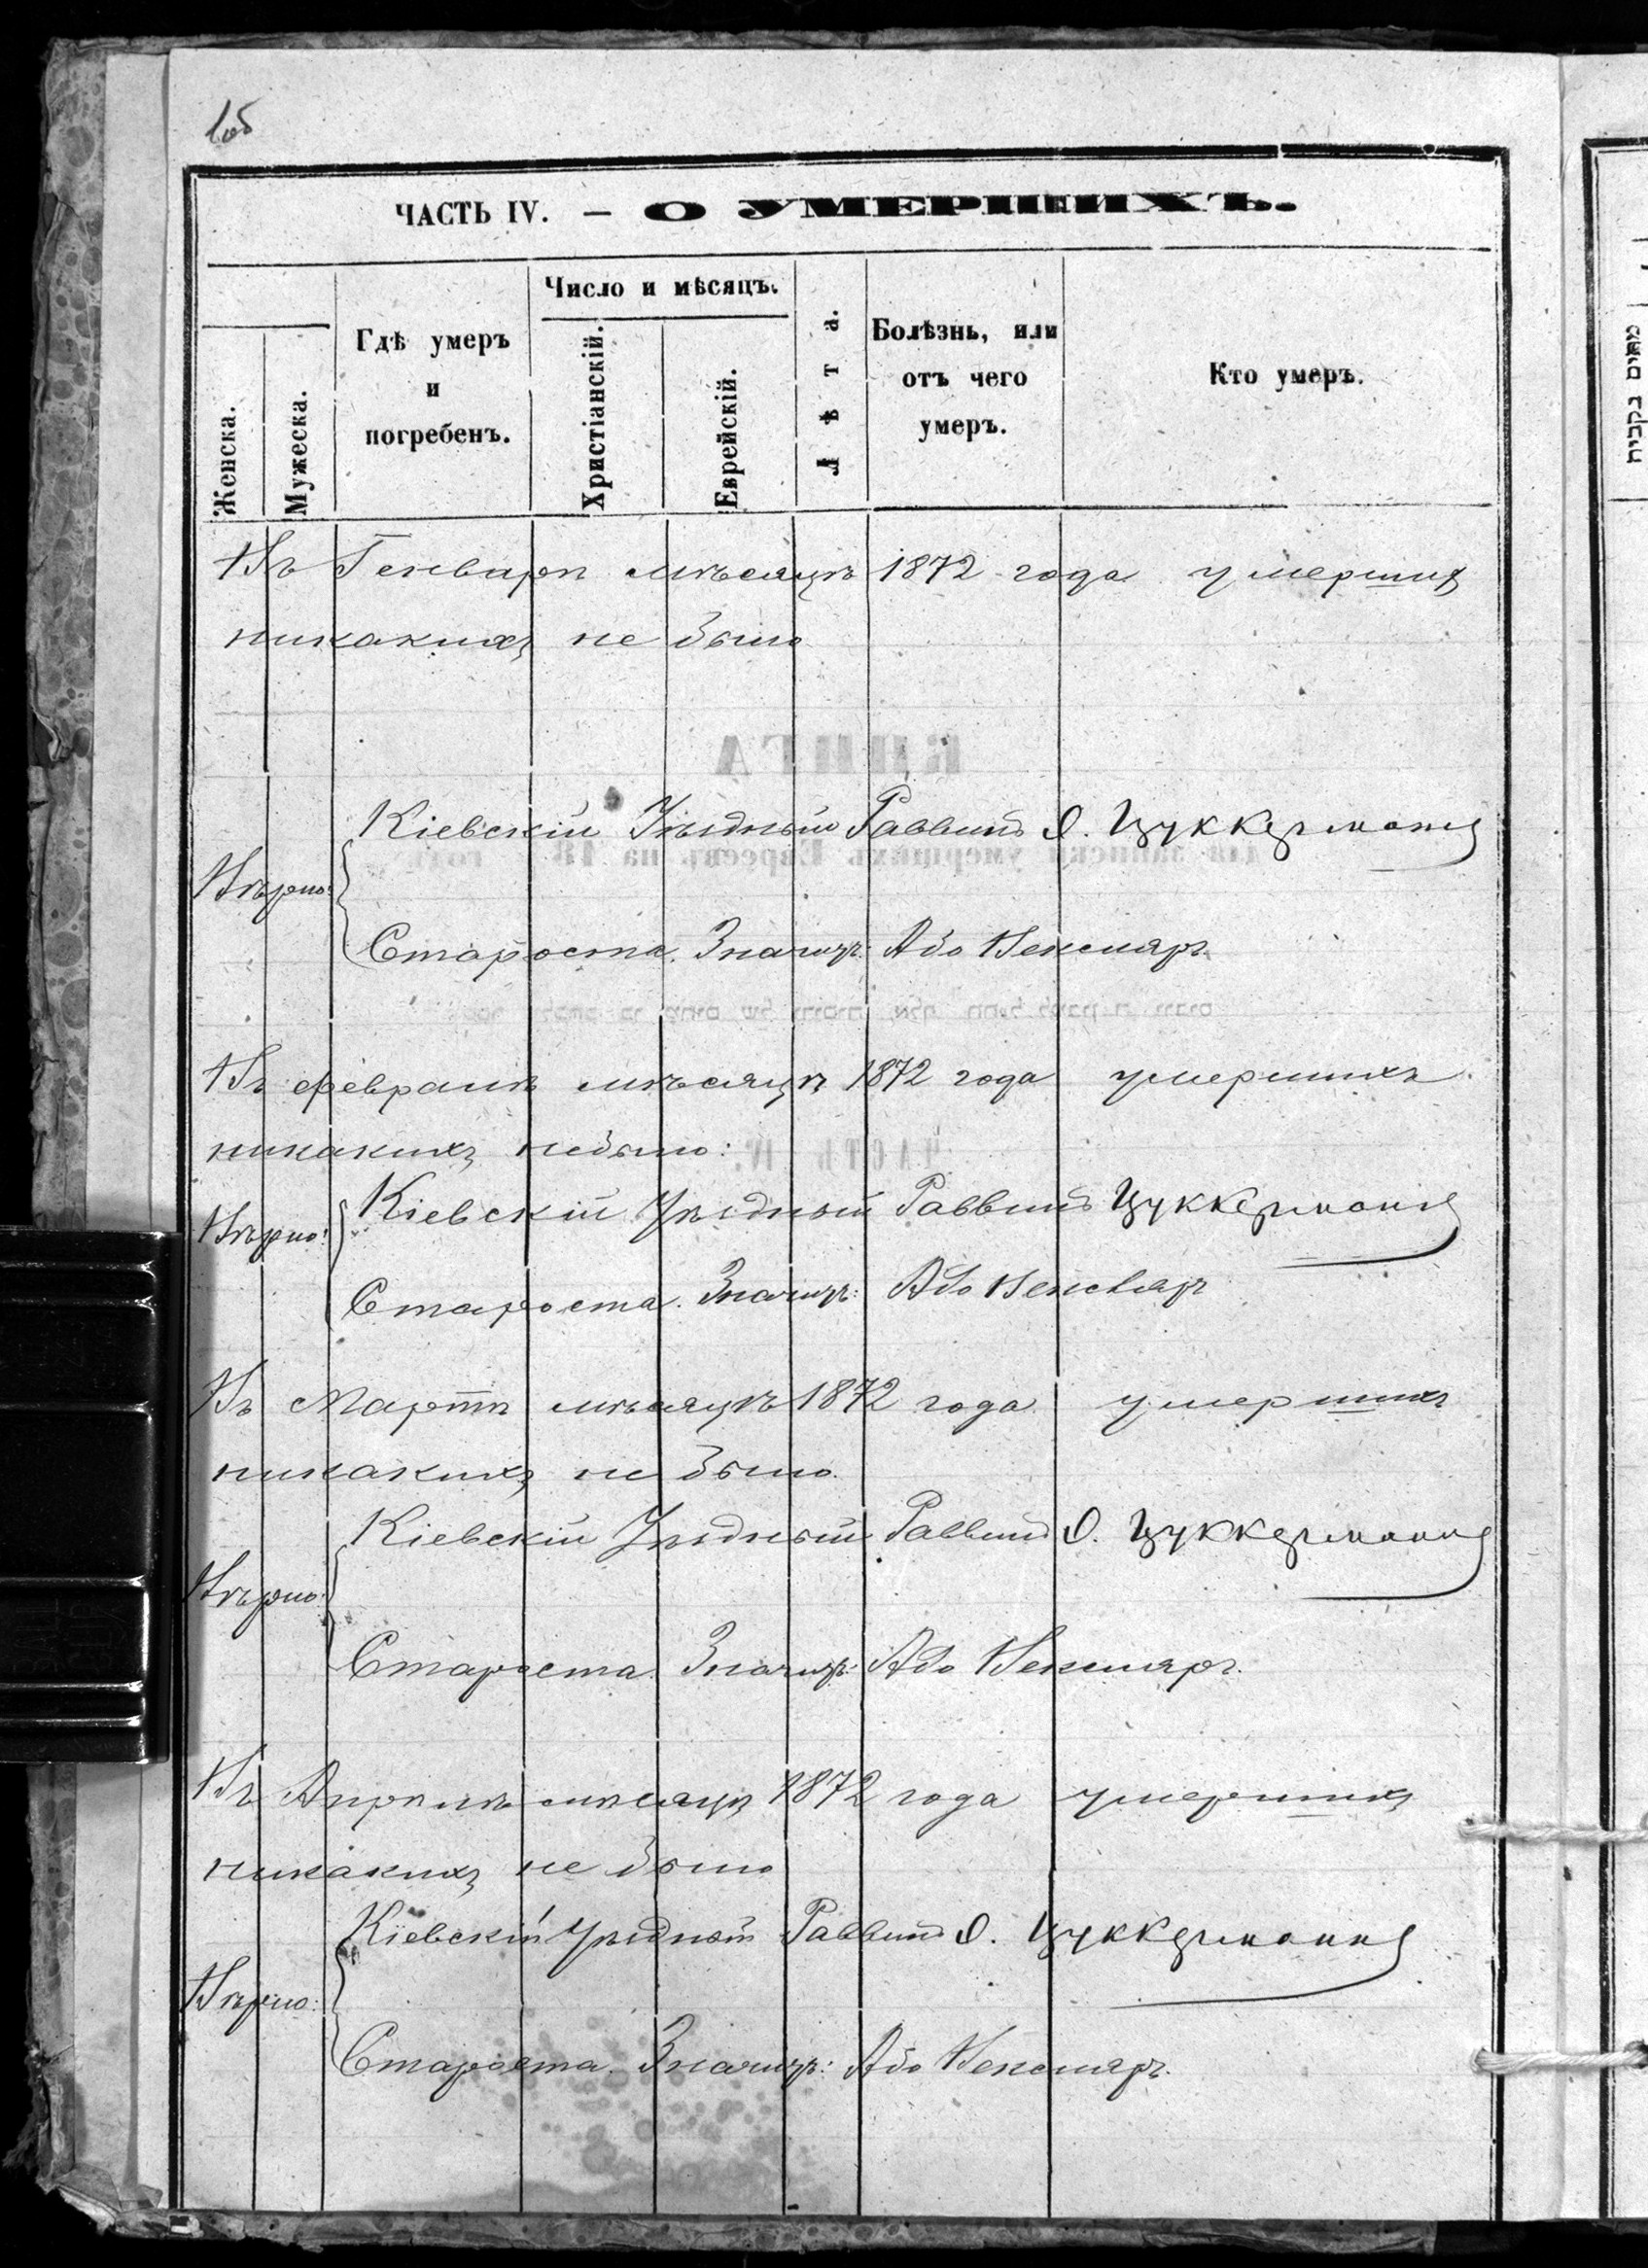 1об
ЧАСТЬ IV. — О УМЕРШИХЪ.
Женска.
Мужеска.
Гдѣ умеръ
и
погребенъ.
Число и мѣсяцъ.
Христіанскій.
Еврейскій.
Лѣта.
Болѣзнь, или
отъ чего
умеръ.
Кто умеръ.
Въ Генварѣ мѣсяцѣ 1872 года умершихъ
никакихъ не было
Кіевскій Уѣздный Раввинъ О. Цуккерманъ
Вѣрно:
Староста. Значитъ: Або Вексляръ.
Въ февралѣ мѣсяцѣ 1872 года умершихъ
никакихъ небыло:
Кіевскій Уѣздный Раввинъ Цуккерманъ
Вѣрно:
Староста. Значитъ: Або Вексляръ
Въ Мартѣ мѣсяцѣ 1872 года умершихъ
никакихъ не было.
Кіевскій Уѣздный Раввинъ О. Цуккерманъ
Вѣрно:
Староста. Значитъ: Або Вексляръ.
Въ Апрѣлѣ мѣсяцѣ 1872 года умершихъ
никакихъ не было
Кіевскій Уѣздный Раввинъ О. Цуккерманъ
Вѣрно:
Староста. Значитъ: Або Вексляръ.